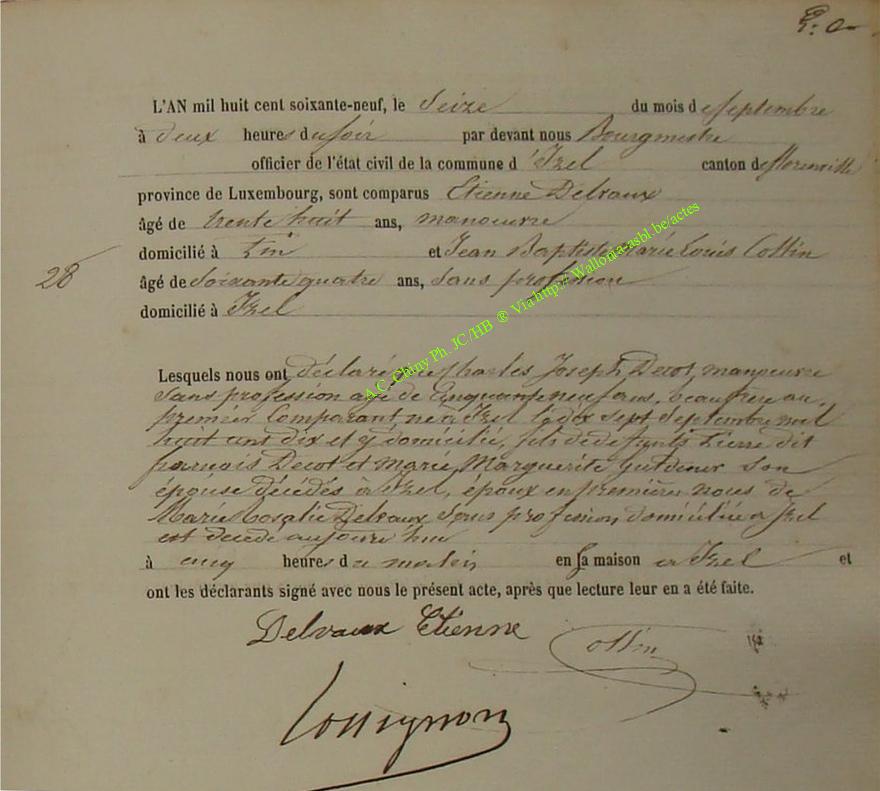 L'AN mil huit cent soixante-neuf, le Seize du mois de Septembre
à deux heures du soir par devant nous Bourgmestre
officier de l'état civil de la commune d'Izel canton de florenville
province de Luxembourg, sont comparus Etienne Delvaux
âgé de trente huit ans, manoeuvre
domicilié à et Jean Baptiste Marie Louis Collin
28
âgé de Soixante quatre ans, sans profession
domicilié à Izel
Lesquels nous ont déclaré que Charles Joseph Decot, manoeuvre
sans profession agé de Cinquante neuf ans, beau frère au
premier Comparant, né à Izel le dix sept Septembre mil
huit cent dix et y domicilié, fils de défunts Pierre dit
françois Decot et Marie Marguerite son
épouse décédés à Izel, époux en première noces de
Marie Rosalie Delvaux sans profession domiciliée à Izel
est décédé aujourd'hui
à cinq heures du matin en sa maison à Izel et
ont les déclarants signé avec nous le présent acte, après que lecture leur en a été faite.
Delvaux Etienne
Collin
Rossignon
A.C. Chiny Ph. JC/HB ® Via http:// Wallonia-asbl.be/actes